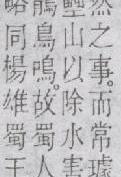 然之事。而常璩
壘山以除水害
鵑鳥鳴。故蜀人
同楊雄蜀王